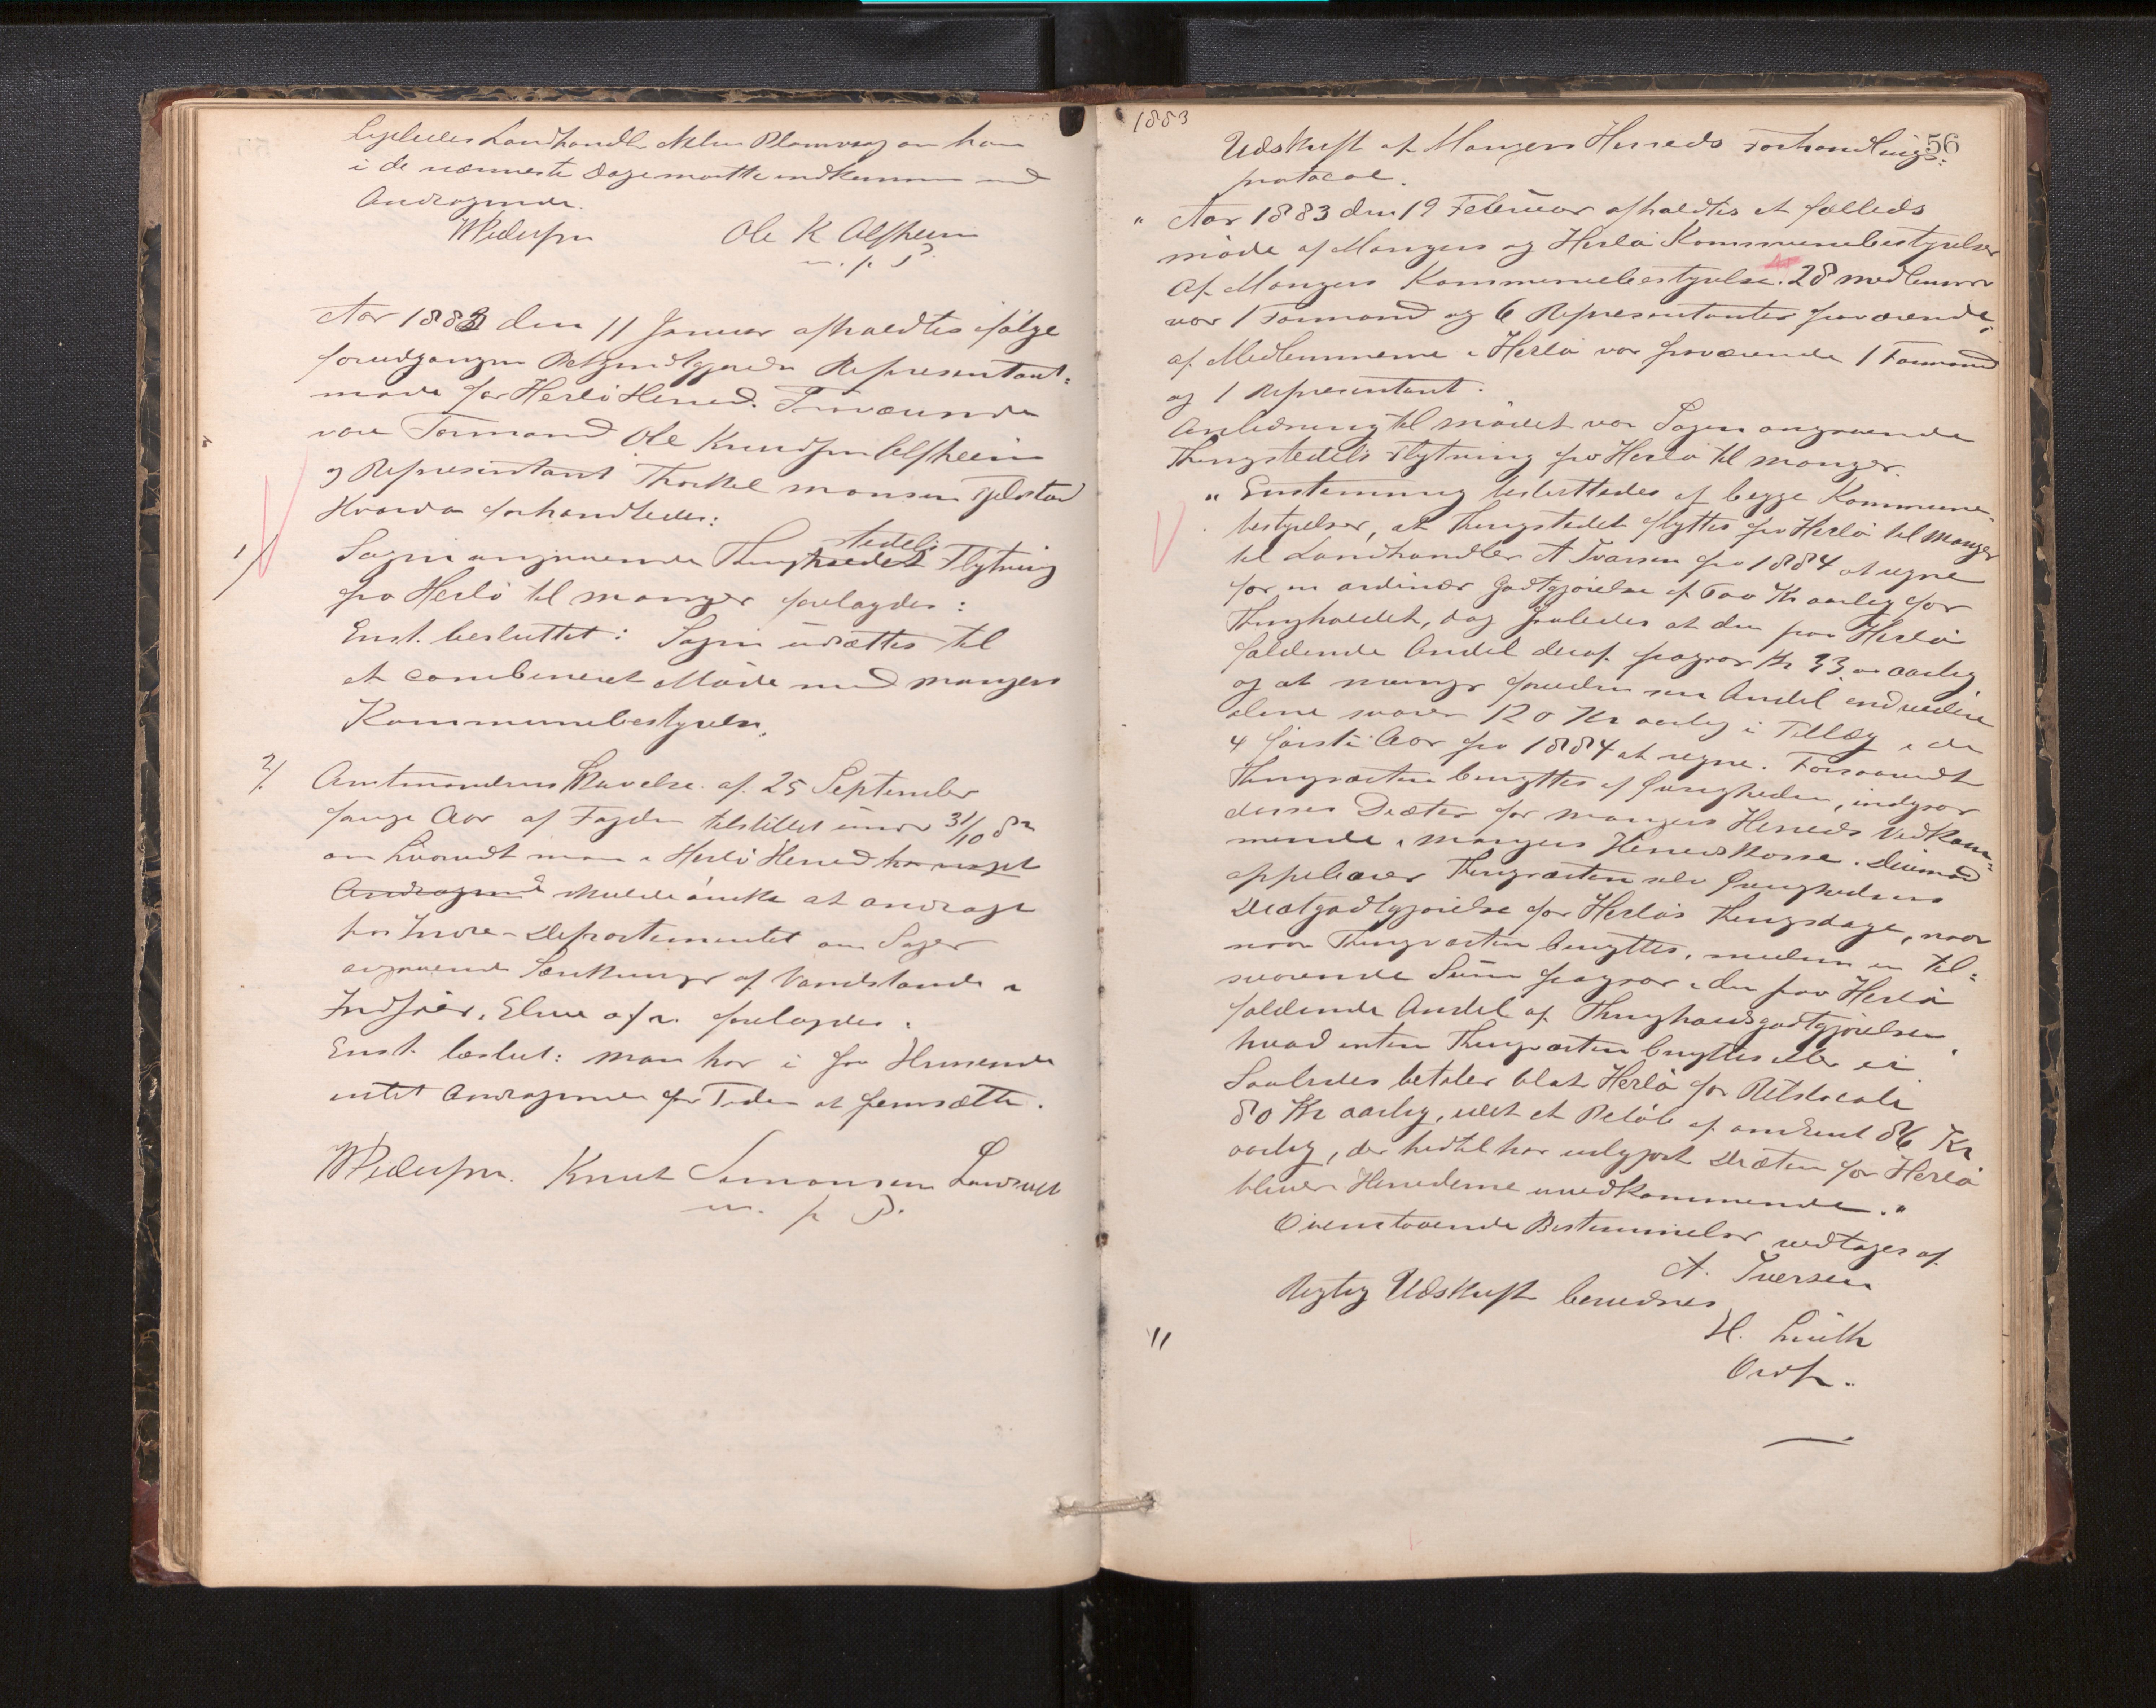 Ligeledes Landhandler Nelsen Blomvaag om han
i de nærmeste Dage maatte indkomme med
Andragende.
WPedersen Ole K Alfheim
m. p. P.
Aar 1883 den 11 Januar afholdtes ifølge
forudgangen Bekjendtgjørelse Representant-
møde for Herlø Herred. Tilstede
vare Formand Ole Knudsen Alfheim
og Representant Thorkel Monsen
Hvorda forhandledes:
1/ Sagen angaaende Thingstedets Flytning
fra Herlø til Manger forelagdes:
Enst. besluttet: Sagen udsættes til
et combineret Møde med Mangers
Kommunebestyrelse.
2/ Amtmandens Skrivelse af 25 September
forrige Aar af Fogden tilstillet under 31/10 82
om hvorvidt man i Herlø Herred har noget
Andragende skulde ønske at andrage
hos Indre-Departementet om Sager
angaaende Sænkninger af Vandstande i
Indsøer, Elve o.s.v. forelagdes.
Enst. beslut: Man har i saa Henseende
intet Andragende for Tiden at fremsætte.
WPedersen. Knut Simonsen Landsvik
m. p P.
1883
56
Udskrift af Mangers Herreds Forhandlings-
protocol.
" Aar 1883 den 19 Februar afholdtes et fælleds
møde af Mangers og Herlø Kommunebestyrelser
Af Mangers Kommunebestyrelse. 28 medlemmer
var 1 Formand og 6 Representanter fraværende,
af Medlemmerne i Herlø var fraværende 1 Formand
og 1 Representant.
Anledning til mødet var Sagen angaaende
Thingstedets Flytning fra Herlø til Manger.
" Enstemmig besluttedes af begge Kommune-
bestyrelser, at Thingstedet flyttes fra Herlø til Manger
til Landhandler A Iversen fra 1884 at regne
for en ordinær Godtgjørelse af 200 Kr aarlig for
Thingholdet, dog saaledes at den paa Herlø
faldende Andel deraf fragaar Kr 33 aarlig
og at Manger foruden sin Andel endvidere
alene svarer 120 Kr aarlig i Tillæg i de
4 første Aar fra 1884 at regne. Forsaavidt
Thingværten benyttes af Øvrigheden, indgaar
dennes Diæter for Mangers Herreds Vedkom-
mende i Mangers Herredskasse. Derimod
oppebærer Thingværten selv Øvrighedens
Diætgodtgjørelse for Herløs Thingdage, naar
naar Thingværten benyttes, medens en til-
svarende Sum fragaar i den paa Herlø
faldende Andel af Thingholdsgodtgjørelsen,
hvad enten Thingværten benyttes eller ei.
Saaledes betaler blot Herlø for Retslocale
80 Kr aarlig, idet et Beløb af omtrent 86 Kr
aarlig, der hidtil har udgjort Diæten for Herlø
bliver Herrederne uvedkommende."
Ovenstaaende Bestemmelser vedtages af
A. Iversen
Rigtig Udskrift bevidnes
H. Lüth
Ordf.
"